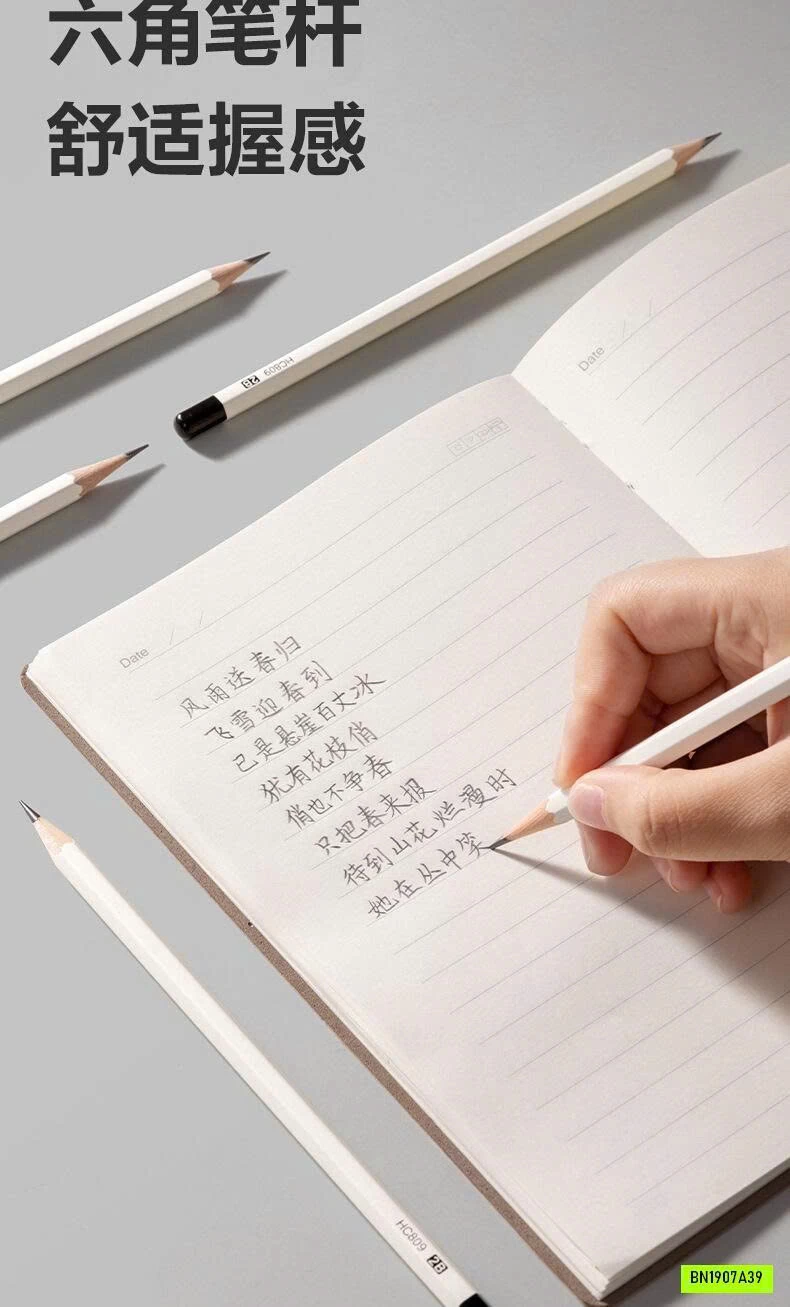 六角笔杆
舒适握感
HC809 2B
Date / /
Date / /
风雨送春归
飞雪迎春到
已是悬崖百丈冰
犹有花枝俏
俏也不争春
只把春来报
待到山花烂漫时
她在丛中笑
HC809 2B
BN1907A39